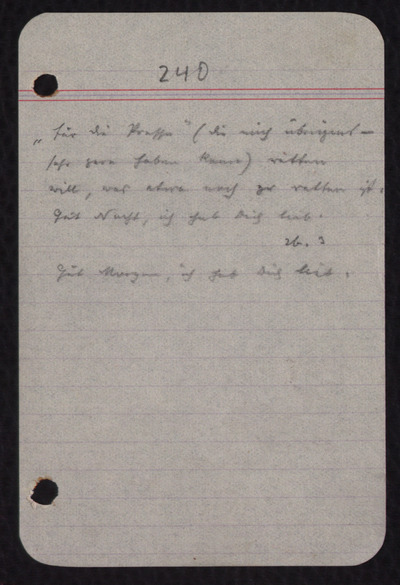 240
„für die Presse" (die mich übrigens –
sehr gern haben kann) retten
will, was etwa noch zu retten ist.
Gut Nacht, ich hab Dich lieb.
26. 3
Gut Morgen, ich hab Dich lieb.